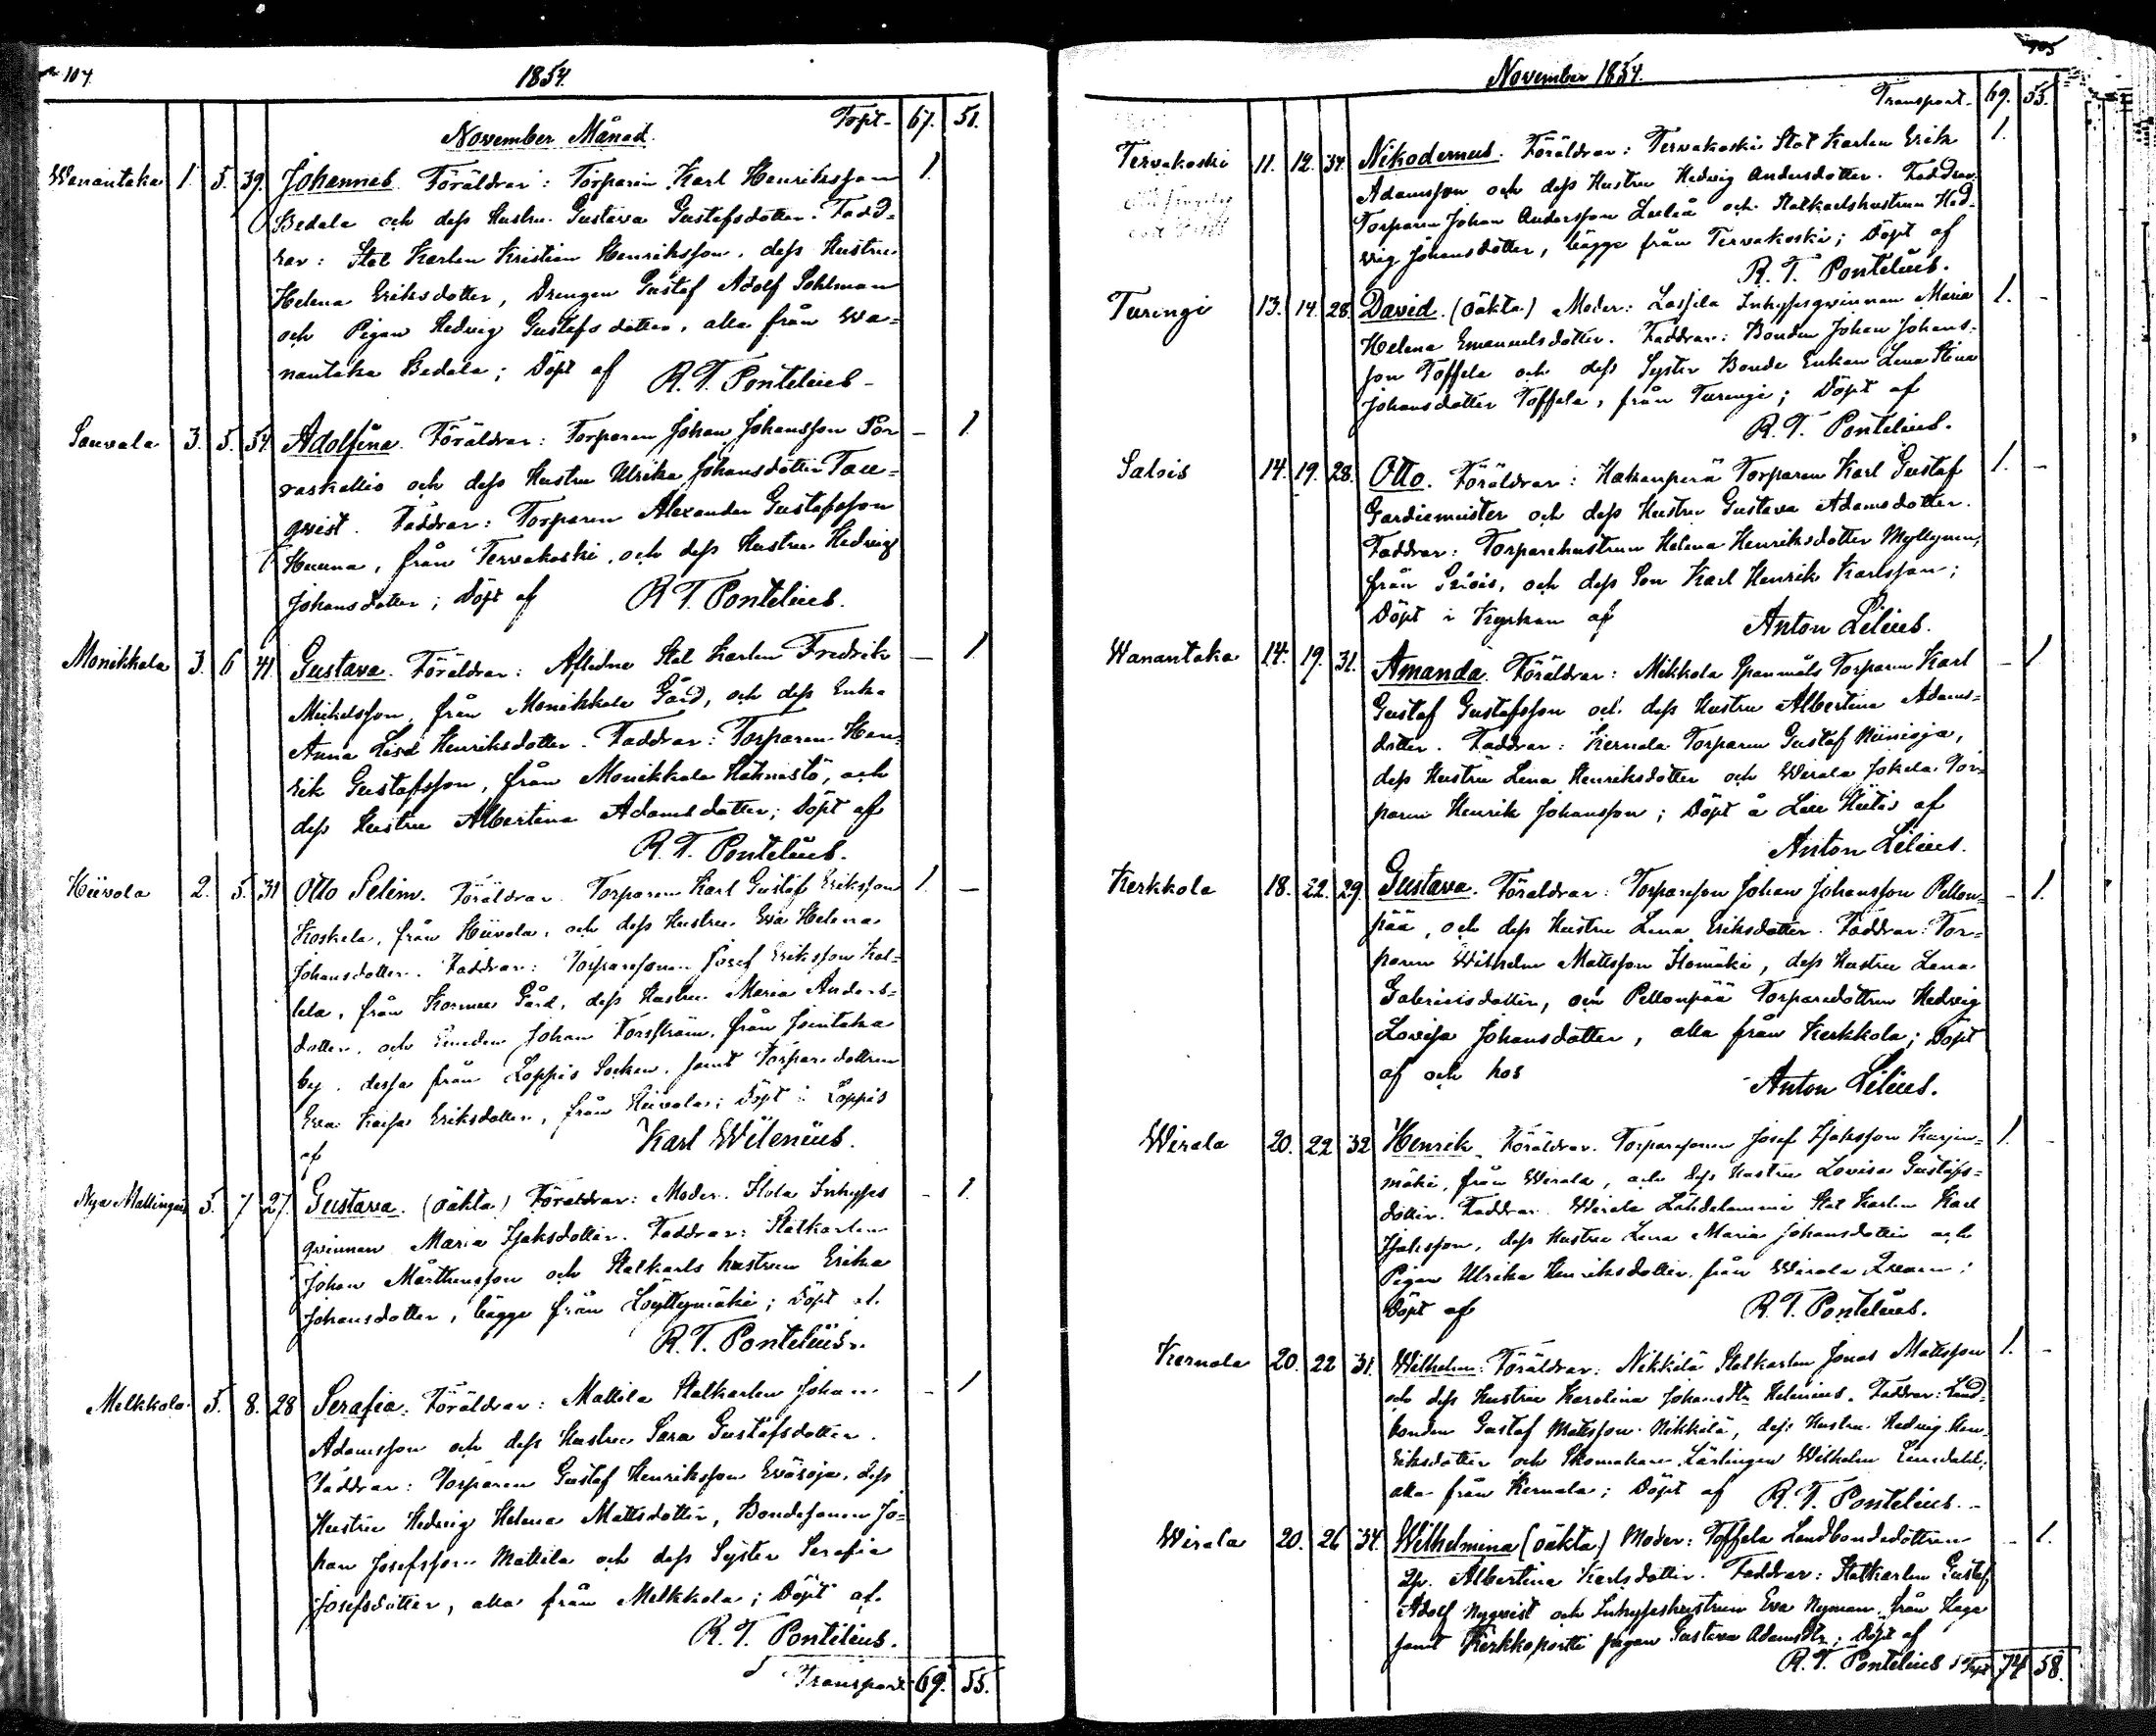 104.
1854.
Tspt. 67. 51.
November Månad.
Wanantaka 1. 5. 39. Johannes. Föräldrar: Torparen Karl Henriksson 1.
Bedala och dess Hustru Gustava Gustafsdotter. Fadd-
rar: Stat Karlen Kristian Henriksson, dess Hustru
Helena Eriksdotter, Drengen Gustaf Adolf Sohlman
och Pigan Hedvig Gustafsdotter, alla från Wa-
nantaka Bedala; Döpt af R. T. Pontelius
Sauvala 3. 5. 34 Adolfina. Föräldrar: Torparen Johan Johansson Por- – 1.
raskallio och dess Hustru Ulrika Johansdotter Tau-
qvist. Faddrar: Torparen Alexander Gustafsson
Huuna, från Tervakoski, och dess Hustru Hedvig
Johansdotter; Döpt af R. T. Pontelius.
Monikkala 3. 6 41. Gustava. Föräldrar: Aflidne Stat Karlen Fredrik – 1.
Mickelsson, från Monikkala Gård, och dess Enka
Anna Lisa Henriksdotter. Faddrar: Torparen Hen-
rik Gustafsson, från Monikkala Hähnistö, och
dess Hustru Albertina Adamsdotter; Döpt af
R. T. Pontelius.
Hiivola 2. 5. 31 Otto Selim. Föräldrar. Torparen Karl Gustaf Eriksson 1. –
Koskela, från Hiivola, och dess Hustru Eva Helena
Johansdotter. Faddrar: Torparesonen Josef Eriksson Kal-
lela, från Kormu Gård, dess Hustru Maria Anders-
dotter, och Smeden Johan Forsström, från Joentaka
by, dessa från Loppis Socken, samt Torparedottren
Eva Kajsa Eriksdotter, från Hiivola; Döpt i Loppis
af Karl Wilenius.
Nya Mallingais 5. 7 27. Gustava. (oäkta) Föräldrar: Moder. Hola Inhyses – 1.
qvinnan Maria Isaksdotter. Faddrar: Statkarlen
Johan Mårthensson och Statkarls hustrun Erika
Johansdotter, bägge från Löyttymäki; Döpt af
R. T. Pontelius.
Melkkola 5. 8. 28 Serafia. Föräldrar: Mattila Statkarlen Johan – 1
Adamsson och dess Hustru Sara Gustafsdotter.
Faddrar: Torparen Gustaf Henriksson Eväsoja, dess
Hustru Hedvig Helena Mattsdotter, Bondesonen Jo-
han Josefsson Mattila och dess Syster Serafia
Josefsdotter, alla från Melkkola; Döpt af
R. T. Pontelius.
Transport 69. 55.
105
November 1854.
Transport. 69. 55.
Tervakoski 11. 12. 34. Nikodemus. Föräldrar: Tervakoski Stat Karlen Erik 1.
Adamsson och dess Hustru Hedvig Andersdotter. Faddrar:
Torparen Johan Andersson Luliå och Statkarlshustrun Hed-
vig Johansdotter, bägge från Tervakoski; Döpt af
R. T. Pontelius.
Turingi 13. 14. 28. David. (oäkta) Moder: Lassila Inhysesqvinnan Maria 1. –
Helena Emanuelsdotter. Faddrar: Bonden Johan Johans-
son Toffela och dess Syster Bonde Enkan Lena Stina
Johansdotter Toffela, från Turingi; Döpt af
R. T. Pontelius.
Salois 14. 19. 28. Otto. Föräldrar: Hakanperä Torparen Karl Gustaf 1. –
Gardiemeister och dess Hustru Gustava Adamsdotter.
Faddrar: Torparehustrun Helena Henriksdotter Myllynen,
från Salois, och dess Son Karl Henrik Karlsson;
Döpt i Kyrkan af Anton Lilius.
Wanantaka 14. 19. 31. Amanda. Föräldrar: Mikkola Spanmåls Torparen Karl – 1
Gustaf Gustafsson och dess Hustru Albertina Adams-
dotter. Faddrar: Kernala Torparen Gustaf Niinioja,
dess Hustru Lena Henriksdotter och Wirala Jokela Tor-
paren Henrik Johansson; Döpt å Lill Hiitis af
Anton Lilius.
Kerkkola 18. 22. 29. Gustava. Föräldrar: Torparesson Johan Johansson Pellon- – 1.
pää, och dess Hustru Lena Eriksdotter. Faddrar: Tor-
paren Wilhelm Mattsson Ilomäki, dess Hustru Lena
Gabrielsdotter, och Pellonpää Torparedottren Hedvig
Lovisa Johansdotter, alla från Kerkkola; Döpt
af och hos Anton Lilius.
Wirala 20. 22 32 Henrik. Föräldrar. Torparesonen Josef Isaksson Karjen- 1. –
mäki, från Wirala, och dess Hustru Lovisa Gustafs-
dotter. Faddrar. Wirala Lähdelammi Stat Karlen Karl
Isaksson, dess Hustru Lena Maria Johansdotter och
Pigan Ulrika Henriksdotter från Wirala Qvarn;
Döpt af R. T. Pontelius.
Kernala 20. 22 31. Wilhelm: Föräldrar: Nikkilä Statkarlen Jonas Mattsson 1. –
och dess Hustru Karolina Johansdtr Helenius. Faddrar: Land-
bonden Gustaf Mattsson Nikkilä, dess Hustru Hedvig Hen-
riksdotter och Skomakare Lärlingen Wilhelm Lundahl,
alla från Kernala; Döpt af R. T. Pontelius.
Wirala 20. 26 34. Wilhelmina (oäkta) Moder: Toffela Landbondedottren – 1.
Qp. Albertina Karlsdotter. Faddrar: Statkarlen Gustaf
Adolf Nyqvist och Inhyseshustrun Eva Nyman från Haga
samt Kirkkoportti pigan Gustava Adamsdtr; Döpt af
R. T. Pontelius Tspt 74 58.